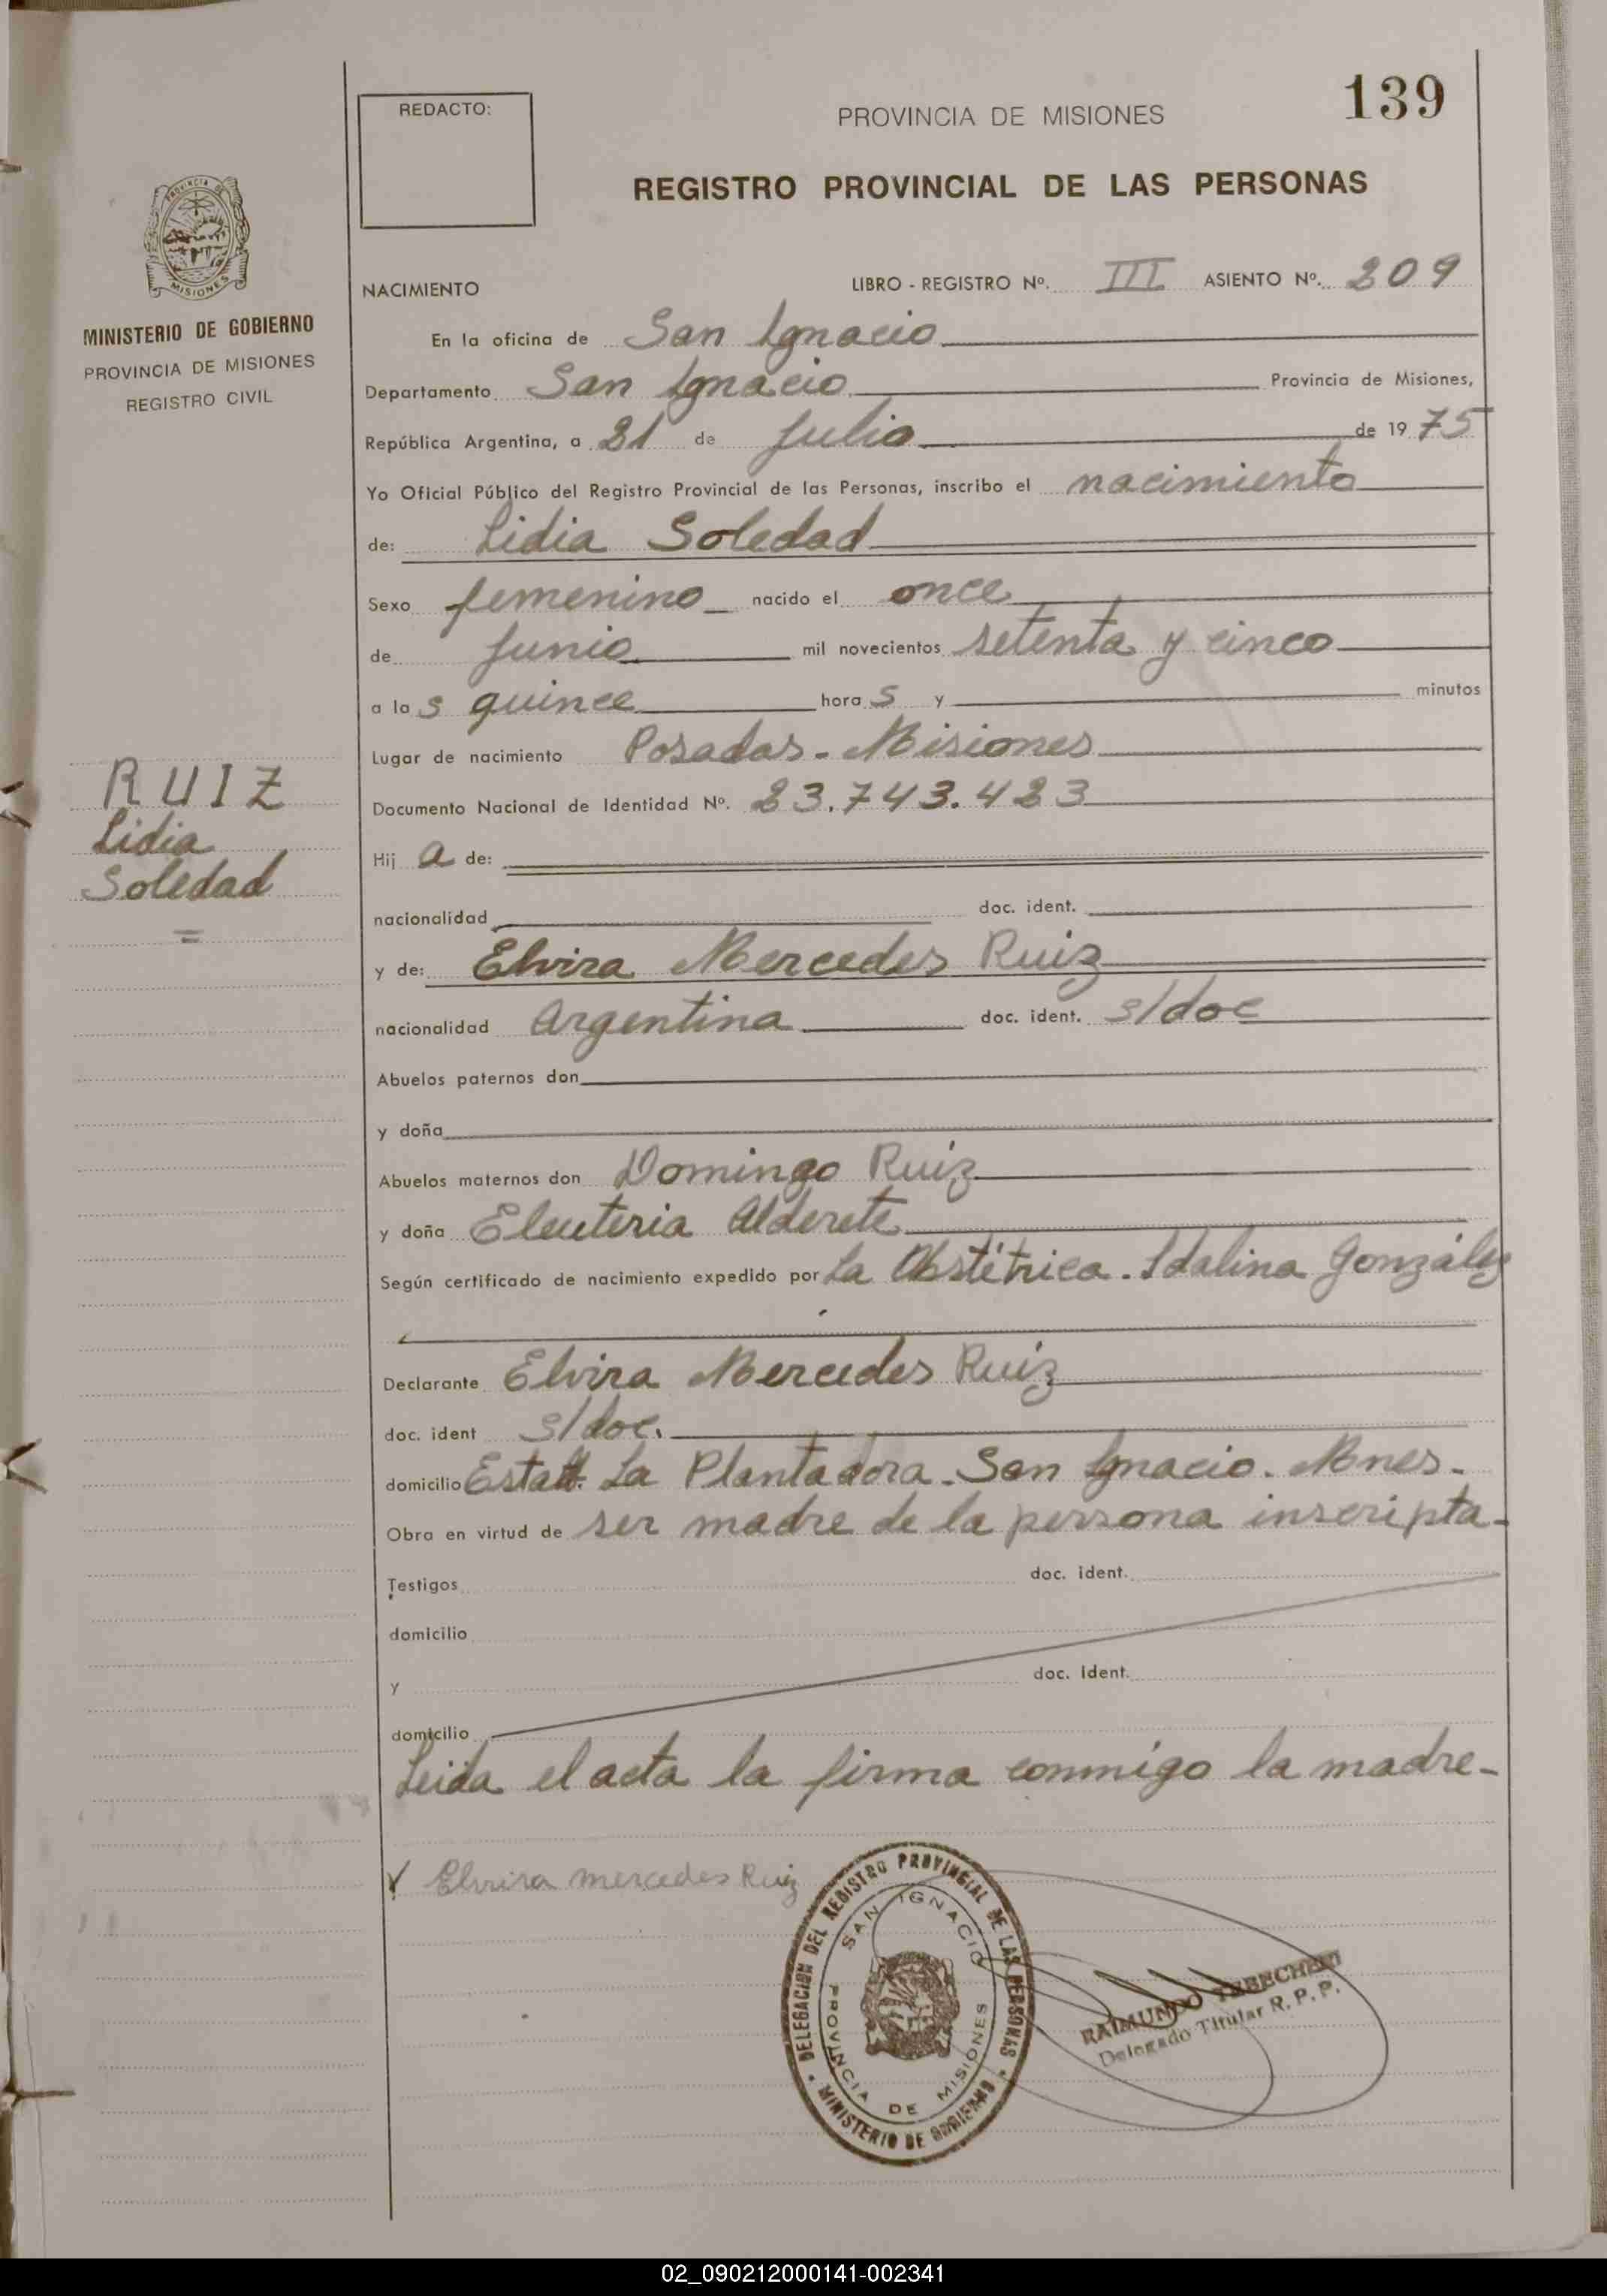 139
REDACTO:
PROVINCIA DE MISIONES
REGISTRO PROVINCIAL DE LAS PERSONAS
PROVINCIA DE
MISIONES
MINISTERIO DE GOBIERNO
PROVINCIA DE MISIONES
REGISTRO CIVIL
NACIMIENTO LIBRO - REGISTRO Nº. III ASIENTO Nº. 209
En la oficina de San Ignacio
Departamento San Ignacio Provincia de Misiones,
República Argentina, a 21 de Julio de 1975
Yo Oficial Público del Registro Provincial de las Personas, inscribo el nacimiento
de: Lidia Soledad
Sexo femenino nacido el once
de Junio mil novecientos setenta y cinco
a las quince horas y minutos
Lugar de nacimiento Posadas - Misiones
RUIZ
Lidia
Soledad
Documento Nacional de Identidad Nº. 23.743.423
Hija de:
nacionalidad doc. ident.
y de: Elvira Mercedes Ruiz
nacionalidad Argentina doc. ident. s/doc
Abuelos paternos don
y doña
Abuelos maternos don Domingo Ruiz
y doña Eleuteria Alderete
Según certificado de nacimiento expedido por La Obstétrica. Idalina González
Declarante Elvira Mercedes Ruiz
doc. ident s/doc.
domicilio La Plantadora - San Ignacio. Mnes.
Obra en virtud de ser madre de la persona inscripta-
Testigos doc. ident.
domicilio
y doc. Ident.
domicilio
Leída el acta la firma conmigo la madre-
Elvira mercedes Ruiz
DELEGACION DEL REGISTRO PROVINCIAL DE LAS PERSONAS
SAN IGNACIO
PROVINCIA DE MISIONES
MINISTERIO DE GOBIERNO
RAIMUNDO
Delegado Titular R. P. P.
02_090212000141-002341